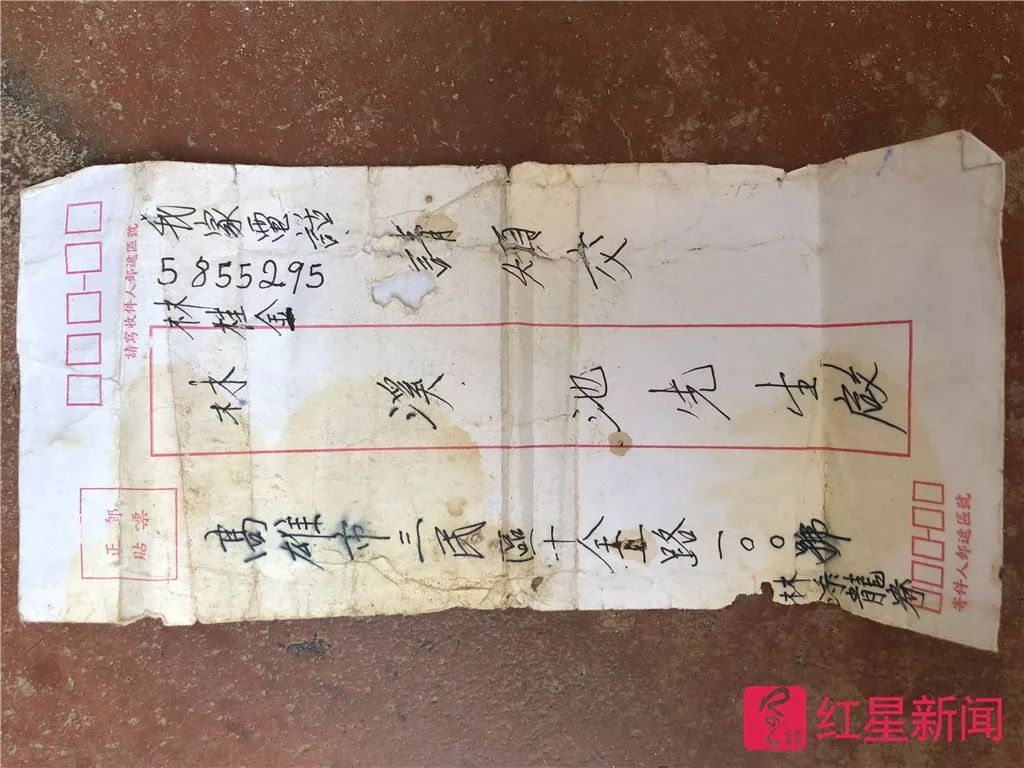 請寫收件人郵遞區號
我家電話
5855295
林桂金
請煩交
林溪池先生啟
正貼
郵票
高雄市三民區十全一路一00號
林龍寄
寄件人郵遞區號
红星新闻